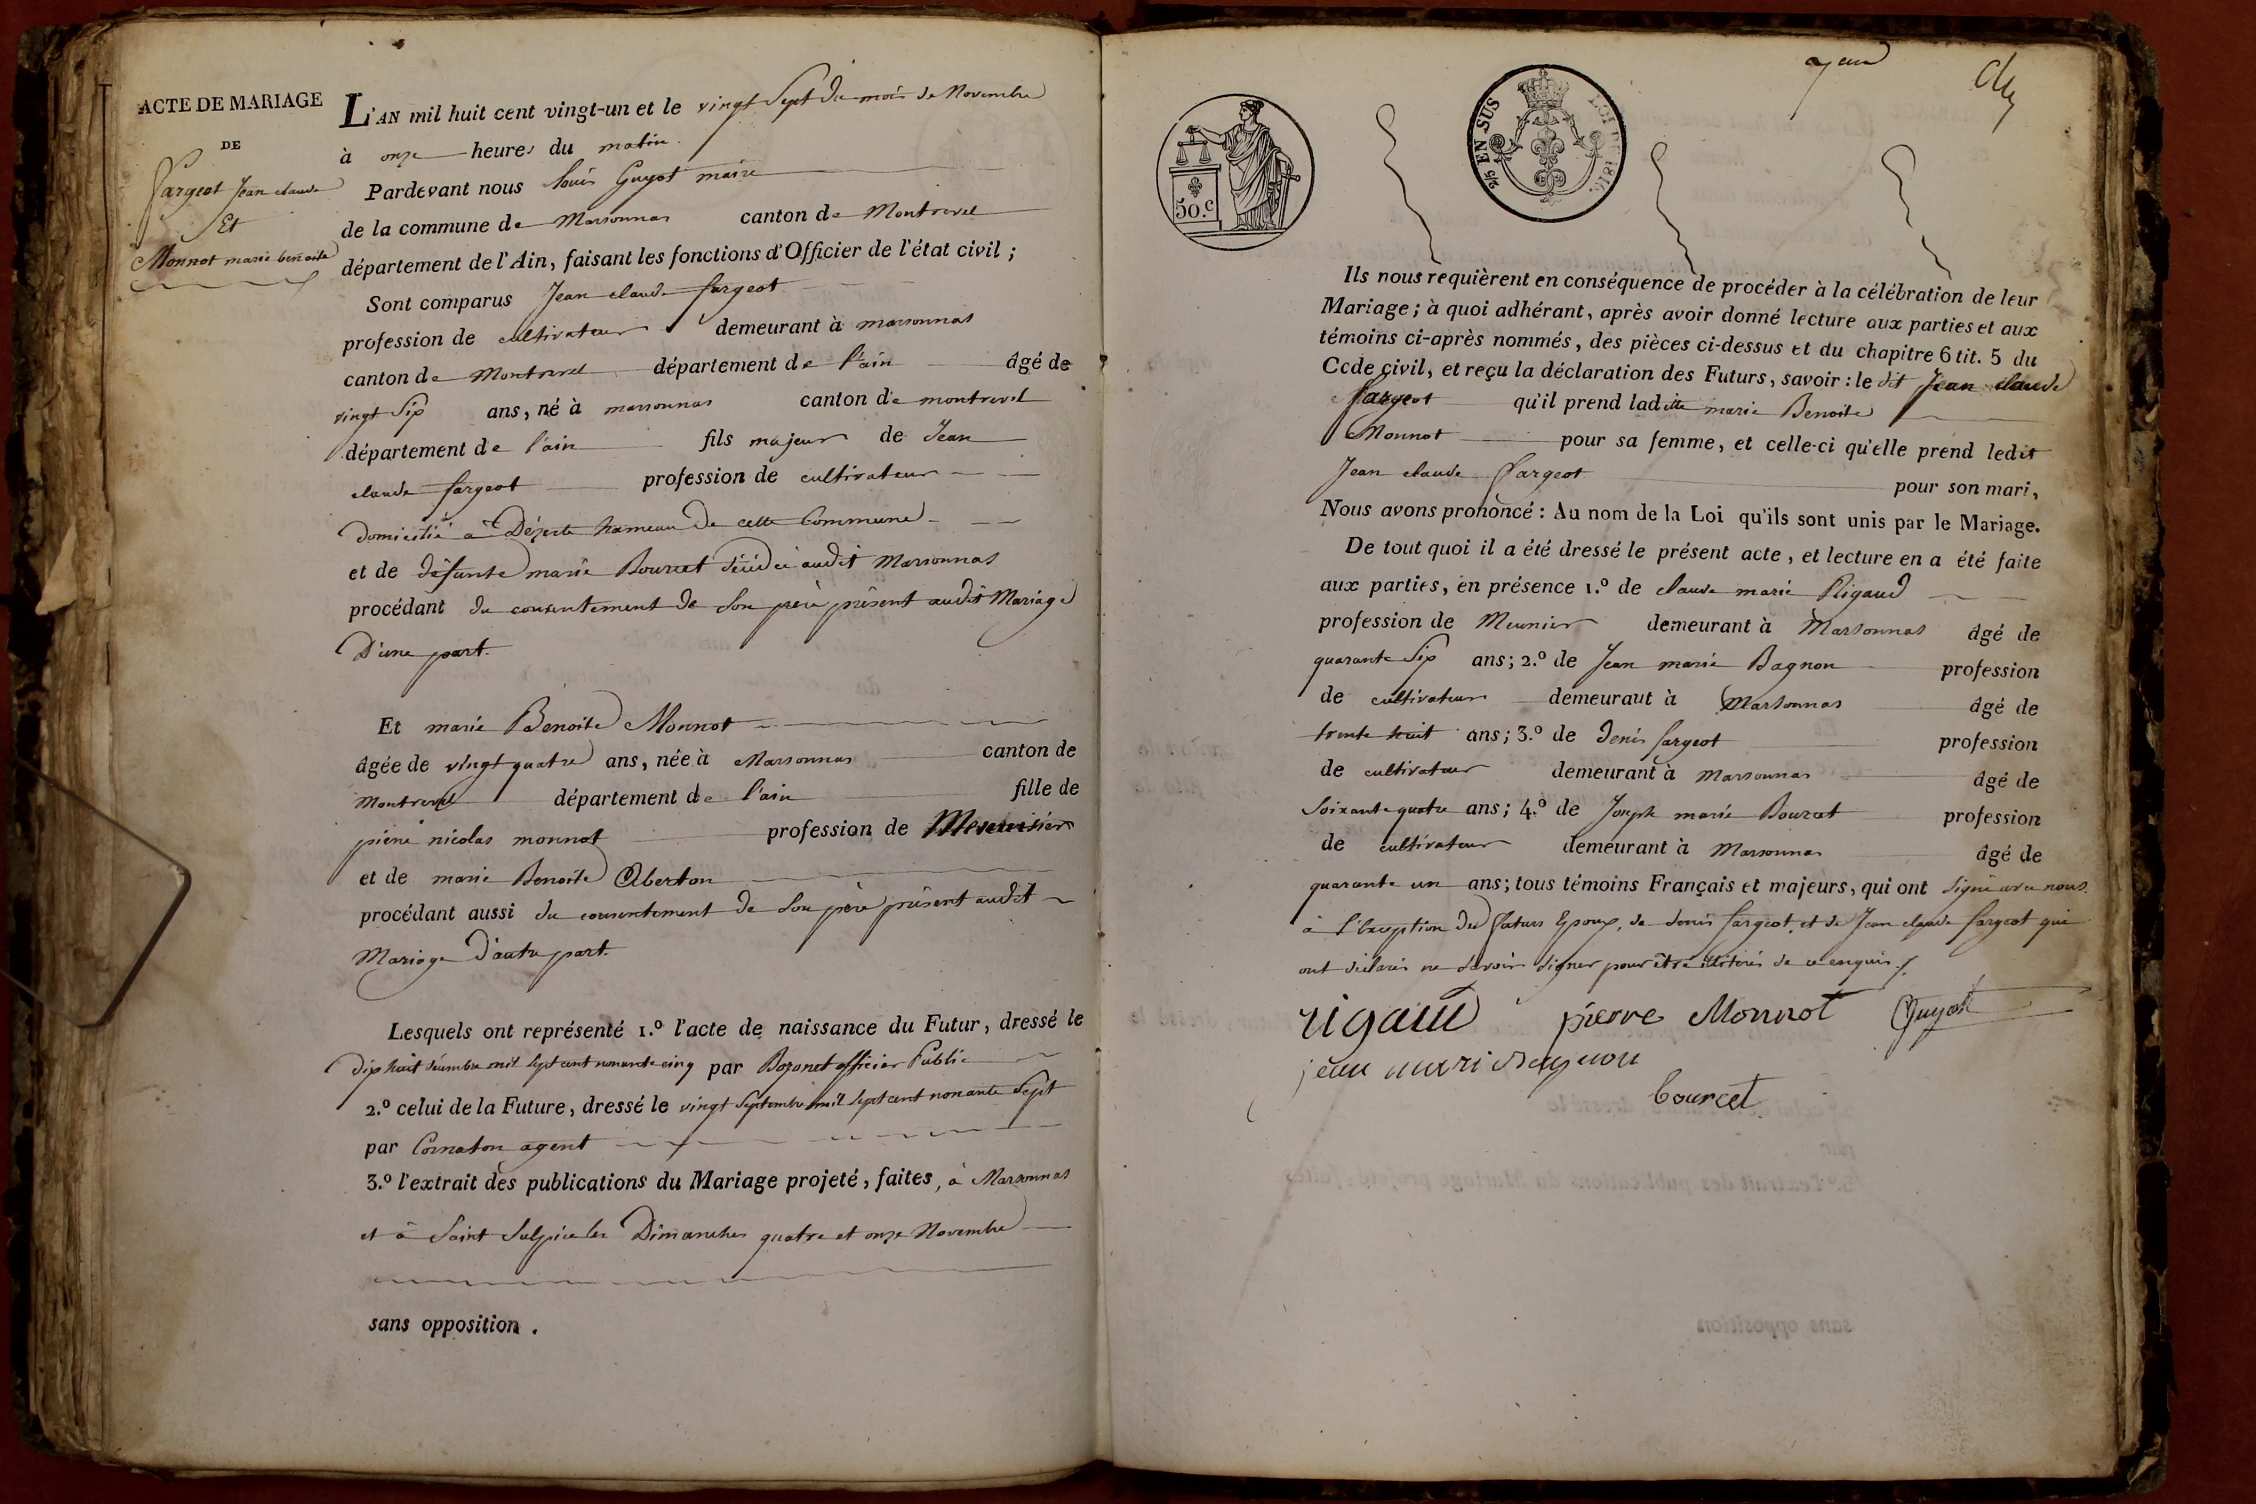 ACTE DE MARIAGE
DE
Fargeot Jean claude
Et
Monnot marie benoite
L'AN mil huit cent vingt-un et le vingt Sept du mois de Novembre
à onze heures du matin
Pardevant nous Louis Guyot maire
de la commune de Marsonnas canton de Montrevel
département de l'Ain, faisant les fonctions d'Officier de l'état civil ;
Sont comparus Jean claude fargeot
profession de cultivateur demeurant à marsonnas
canton de Montrevel département de l'ain âgé de
vingt Six ans, né à marsonnas canton de montrevel
département de l'ain fils majeur de Jean
claude fargeot profession de cultivateur
Domicilié à hameau de cette Commune
et de défunte marie Bourcet décédée audit Marsonnas
procédant du consentement de Son père présent audit Mariage
D'une part.
Et marie Benoite Monnot
âgée de vingt quatre ans, née à Marsonnas canton de
Montrevel département de l'ain fille de
pierre nicolas monnot profession de
et de marie Benoite Aberton
procédant aussi du consentement de Son père présent audit
Mariage d'autre part.
Lesquels ont représenté 1.º l'acte de naissance du Futur, dressé le
Dix huit décembre mil sept cent nonante cinq par Bozonet officier Public
2.º celui de la Future, dressé le vingt Septembre mil Sept cent nonante Sept
par Cornaton agent
3.º l'extrait des publications du Mariage projeté, faites, à Marsonnas
et à Saint Sulpice les Dimanches quatre et onze Novembre
sans opposition.
50.c
2/5 EN SUS
LOI DE 1816.
Ils nous requièrent en conséquence de procéder à la célébration de leur
Mariage ; à quoi adhérant, après avoir donné lecture aux parties et aux
témoins ci-après nommés, des pièces ci-dessus et du chapitre 6 tit. 5 du
Code civil, et reçu la déclaration des Futurs, savoir : le dit Jean claude
fargeot qu'il prend laditte marie Benoite
Monnot pour sa femme, et celle-ci qu'elle prend ledit
Jean claude Fargeot pour son mari,
Nous avons prononcé : Au nom de la Loi qu'ils sont unis par le Mariage.
De tout quoi il a été dressé le présent acte, et lecture en a été faite
aux parties, en présence 1.º de claude marie Rigaud
profession de Meunier demeurant à Marsonnas âgé de
quarante Six ans ; 2.º de Jean marie Bagnon profession
de cultivateur demeuraut à Marsonnas âgé de
trente huit ans ; 3.º de Denis fargeot profession
de cultivateur demeurant à Marsonnas âgé de
Soixante quatre ans ; 4.º de Joseph marie Bourcet profession
de cultivateur demeurant à Marsonnas âgé de
quarante un ans ; tous témoins Français et majeurs, qui ont signé avec nous
à l'exception des futurs Epoux, de denis fargeot et de Jean claude fargeot qui
ont déclarés ne Savoir Signer pour être illitérés de ce enquis
rigaud pierre Monnot Guyot
jean mari bagnon
bourcet